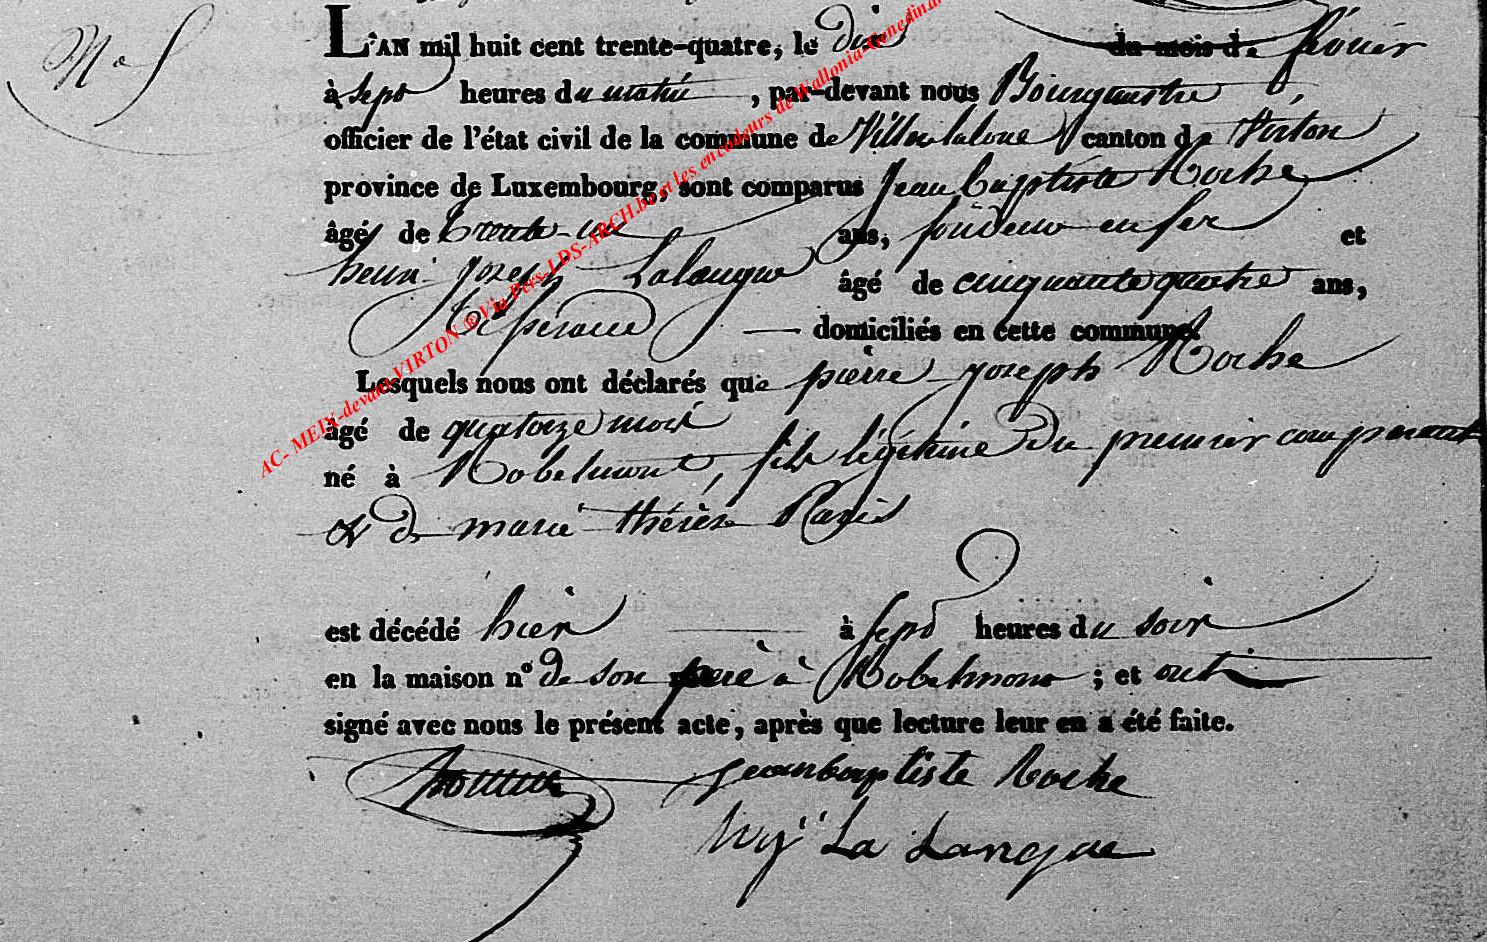 L'AN mil huit cent trente-quatre, le dix du mois de février
à sept heures du matin, par-devant nous Bourgmestre,
officier de l'état civil de la commune de Villers la loue canton de Virton
province de Luxembourg, sont comparus Jean Baptiste Roche
âgé de trente ans, fondeur en fer et
henri joseph Lalangue âgé de cinquante quatre ans,
domiciliés en cette commune.
Lesquels nous ont déclarés que pierre joseph Roche
âgé de quatorze mois
né à Robelmont, fils légitime du premier comparant
& de marie thérèse Paris
est décédé hier à sept heures du soir
en la maison n° de son père à Robelmont ; et ont
signé avec nous le présent acte, après que lecture leur en a été faite.
Jean baptiste Roche
La Langue
AC- MEIX-devant-VIRTON ® Via Pers-LDS-ARCH.be et les encodeurs de Wallonia-Genedinan